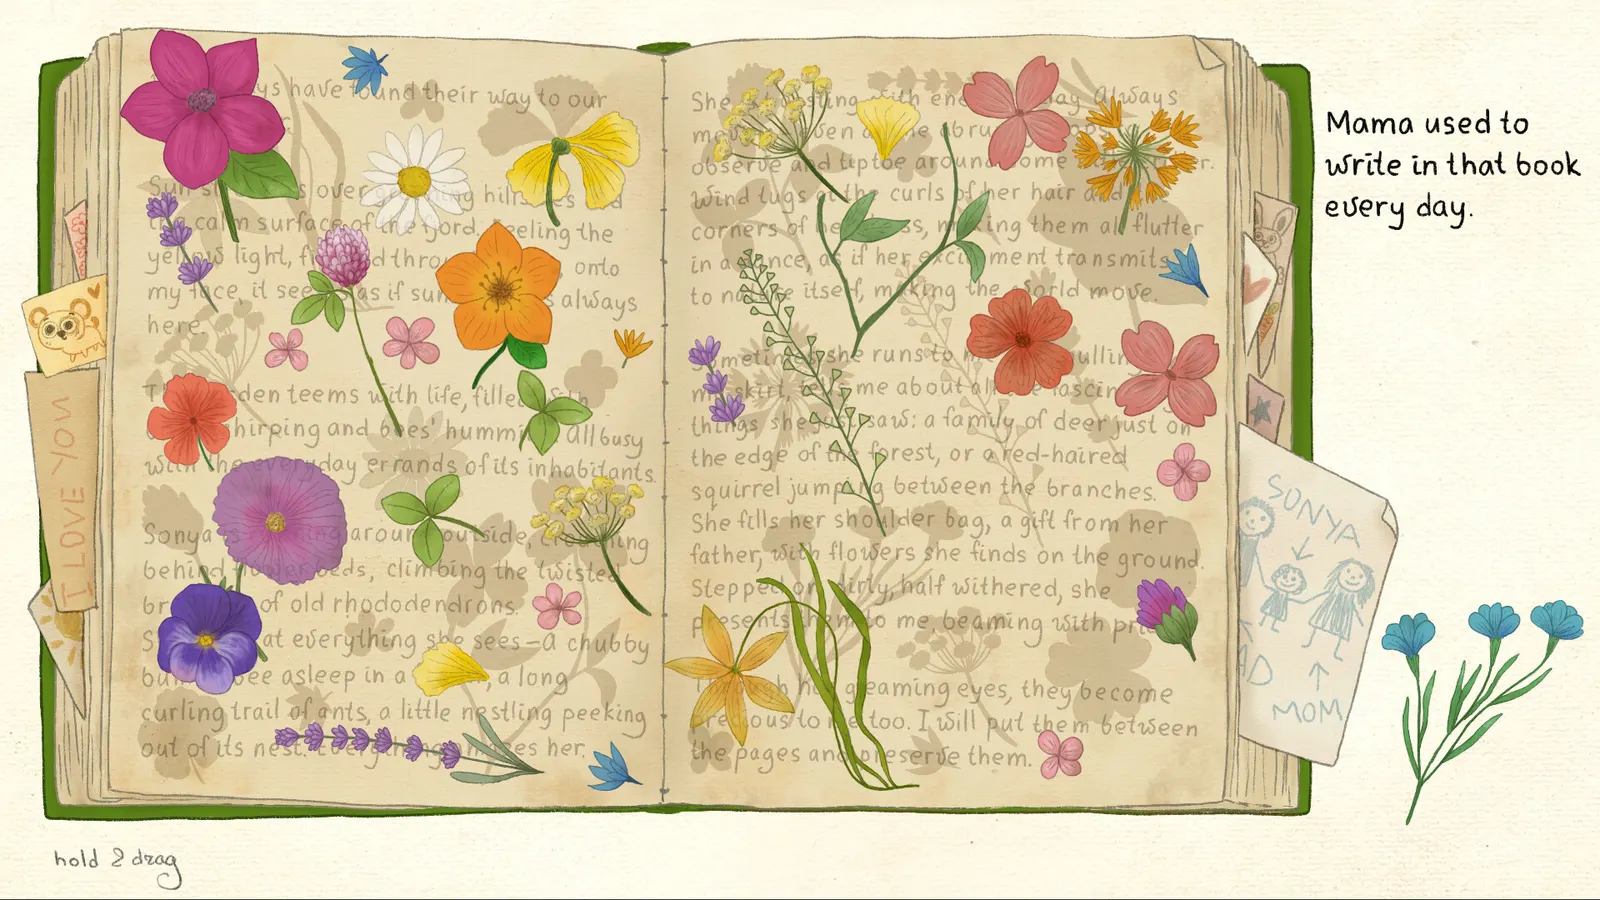 have found their way to our
over hills
calm surface of the fjord. Feeling the
yellow light, onto
my face, it seems as if always
here.
teems with life, filled
chirping and bees' humming. All busy
with the everyday errands of its inhabitants.
Sonya is running around outside, crouching
behind flower beds, climbing the twisted
of old rhododendrons.
at everything she sees – a chubby
bee asleep in a a long
curling trail of ants, a little nestling peeking
out of its nest. Everything amazes her.
She always
observe and tiptoe around some
Wind tugs at the curls of her hair and
corners of her dress, making them all flutter
in a as if her excitement transmits
to nature itself, making the world move.
Sometimes she runs to
my skirt, tells me about all
things she just saw: a family of deer just on
the edge of the forest, or a red-haired
squirrel jumping between the branches.
She fills her shoulder bag, a gift from her
father, with flowers she finds on the ground.
Stepped on, dirty, half withered, she
presents them to me, beaming with
Through her gleaming eyes, they become
precious to me too. I will put them between
the pages and preserve them.
I LOVE YOU
SONYA
MOM
Mama used to
write in that book
every day.
hold & drag